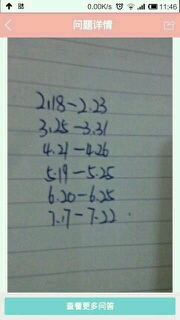 0.00K/s 11:46
问题详情
2.18-2.23
3.25-3.31
4.21-4.26
5.19-5.25
6.20-6.25
7.17-7.22
查看更多问答